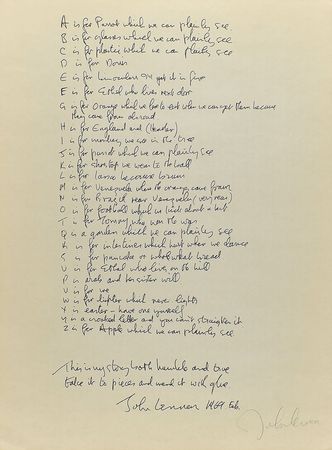 A is for Parrot which we can plainly see
B is for glasses which we can plainly see
C is for plastic which we can plainly see
D is for Doris
E is for binoculars I'll get it in five
F is for Ethel who lives next door
G is for Orange which we love to eat when we can get them because
they come from abroad
H is for England and (Heather)
I is for monkey we see in the tree
J is for parrot which we can plainly see
K is for shoetop we wear to the ball
L is for Land because brown
M is for Venezuela where the oranges come from
N is for Brazil near Venezuela (very near)
O is for football which we kick about a bit
T is for Tommy who won the war
Q is a garden which we can plainly see
R is for intestines which hurt when we dance
S is for pancake or whole wheat bread
U is for Ethel who lives on the hill
P is arab and her sister will
V is for me
W is for lighter which never lights
X is easter - have one yourself
Y is a crooked letter and you can't straighten it
Z is for Apple which we can plainly see.
This is my story both humble and true
take it to pieces and mend it with glue
John Lennon 1969 Feb.
John Lennon